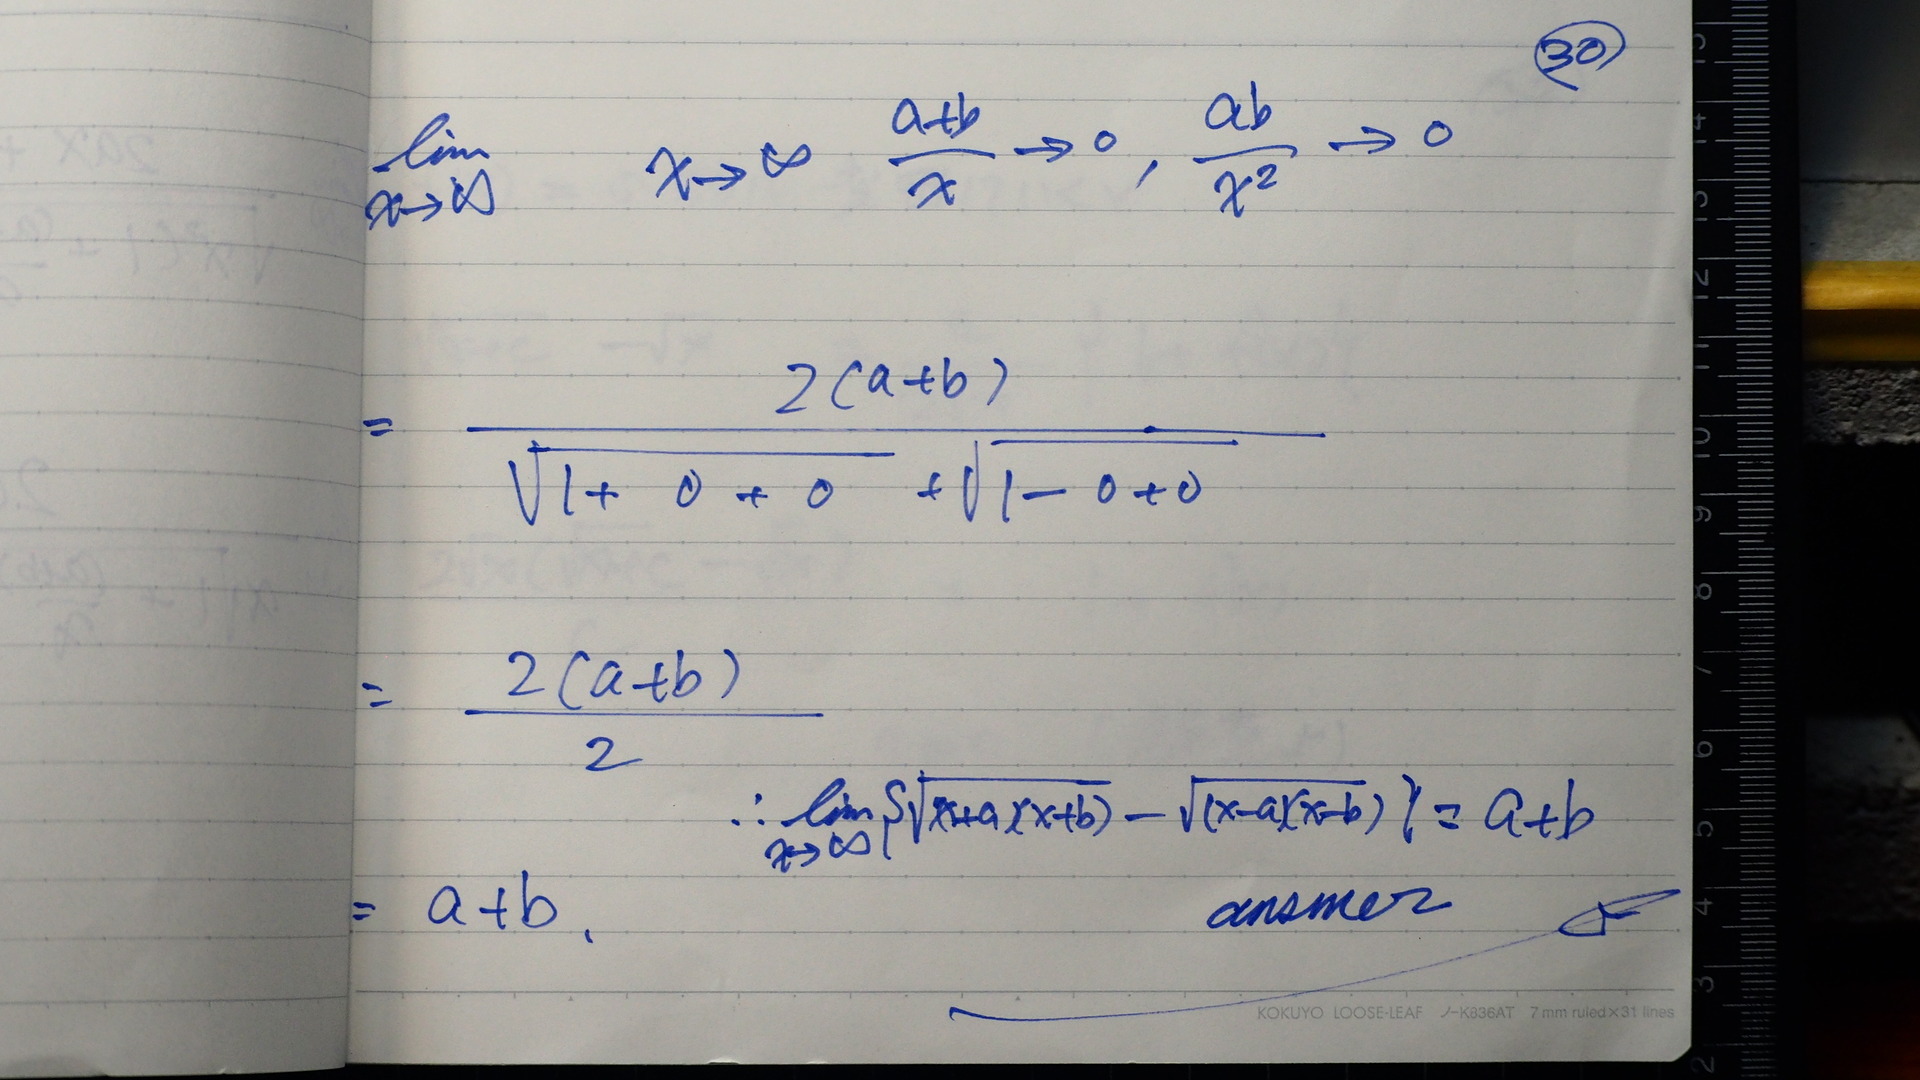 30
lim x→∞ x→∞ a+b/x → 0, ab/x² → 0
= 2(a+b) / √(1+0+0) + √(1-0+0)
= 2(a+b) / 2
∴ lim x→∞ {√(x+a)(x+b) - √(x-a)(x-b)} = a+b
= a+b,
answer
KOKUYO LOOSE-LEAF ノ-K836AT 7 mm ruled×31 lines
15
14
13
12
11
10
9
8
7
6
5
4
3
2